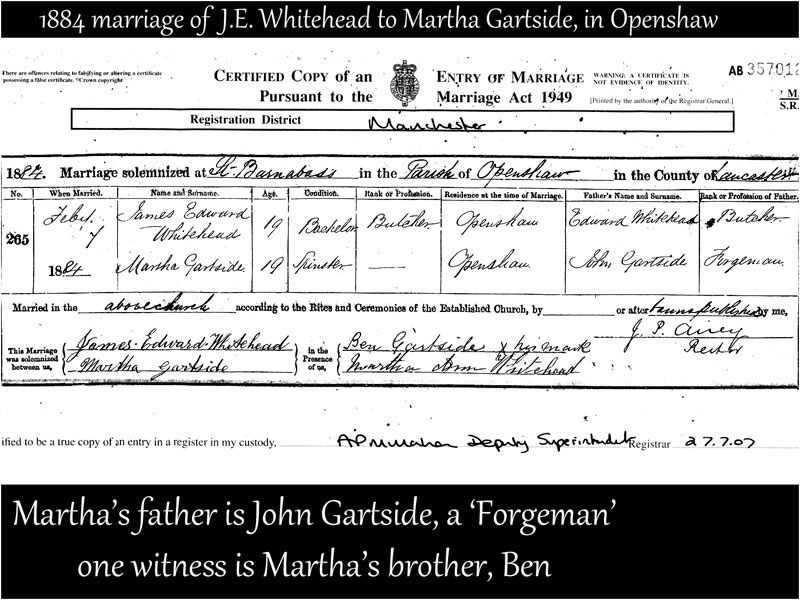 1884 marriage of J.E. Whitehead to Martha Gartside, in Openshaw
There are offences relating to falsifying or altering a certificate
possessing a false certificate. ©Crown copyright
CERTIFIED COPY OF AN ENTRY OF MARRIAGE
Pursuant to the Marriage Act 1949
WARNING: A CERTIFICATE IS
NOT EVIDENCE OF IDENTITY.
[Printed by the authority of the Registrar General.]
AB 357012
M.
S.R.
Registration District Manchester
1884. Marriage solemnized at St. Barnabas's in the Parish of Openshaw in the County of Lancaster
No. When Married. Name and Surname. Age. Condition. Rank or Profession. Residence at the time of Marriage. Father's Name and Surname. Rank or Profession of Father.
265 Feby. 7 1884
James Edward Whitehead 19 Bachelor Butcher Openshaw Edward Whitehead Butcher
Martha Gartside 19 Spinster — Openshaw John Gartside Forgeman
Married in the above church according to the Rites and Ceremonies of the Established Church, by or after banns published by me,
This Marriage was solemnized between us,
James Edward Whitehead
Martha Gartside
in the Presence of us,
Ben Gartside x his mark
Martha Ann Whitehead
J. P. Airey
Rector
ified to be a true copy of an entry in a register in my custody, Deputy Superintendent Registrar 27.7.07
Martha's father is John Gartside, a 'Forgeman'
one witness is Martha's brother, Ben